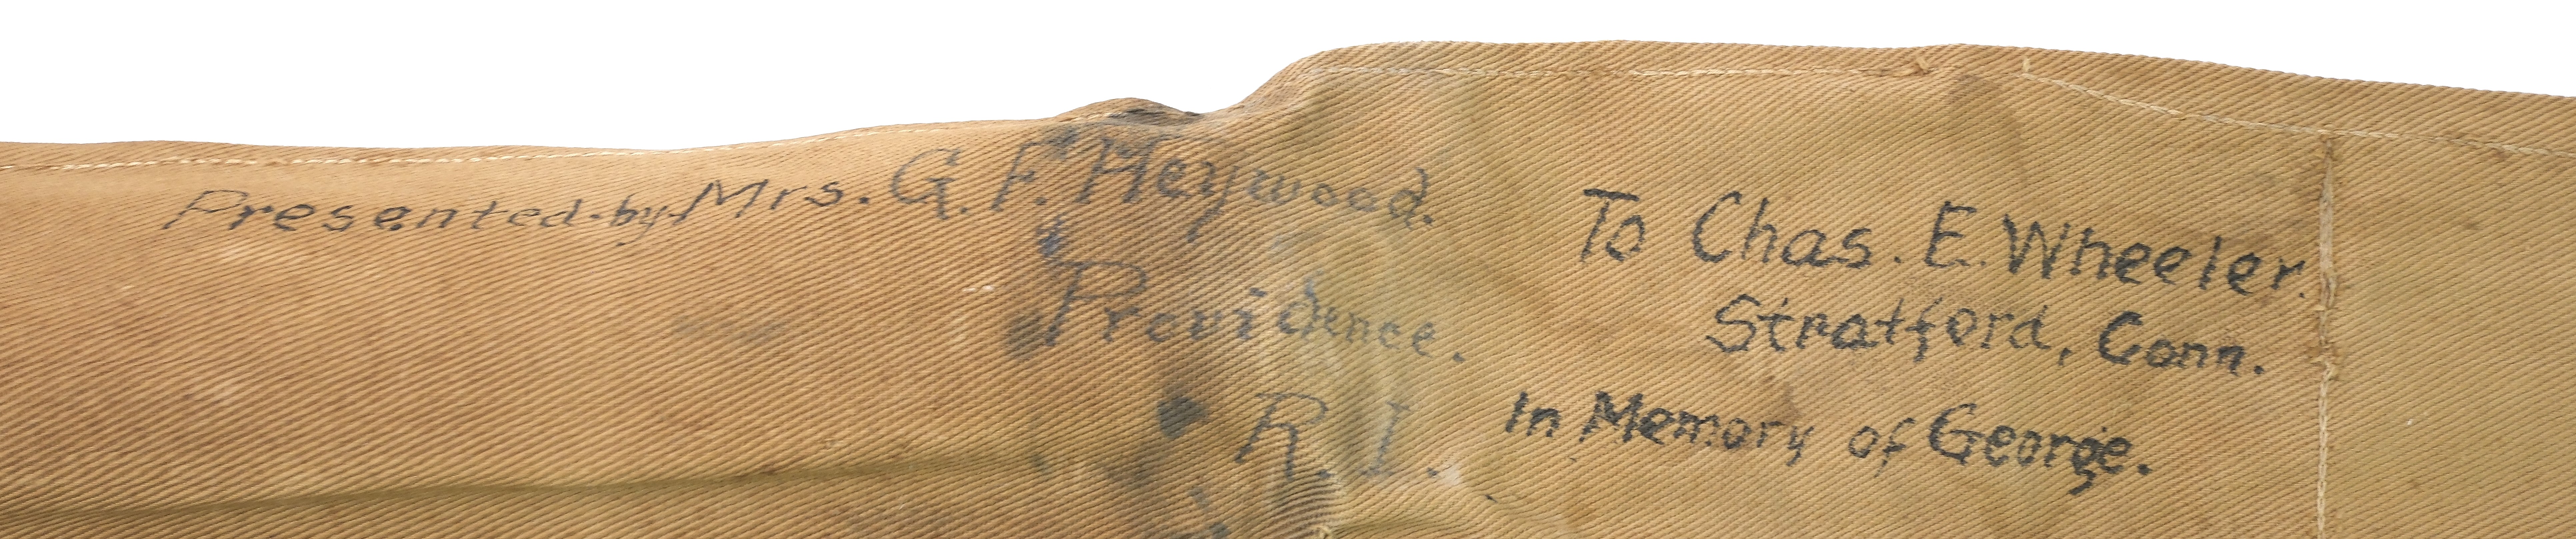 Presented by Mrs. G. F. Heywood.
Providence.
R. I.
To Chas. E. Wheeler.
Stratford, Conn.
In Memory of George.